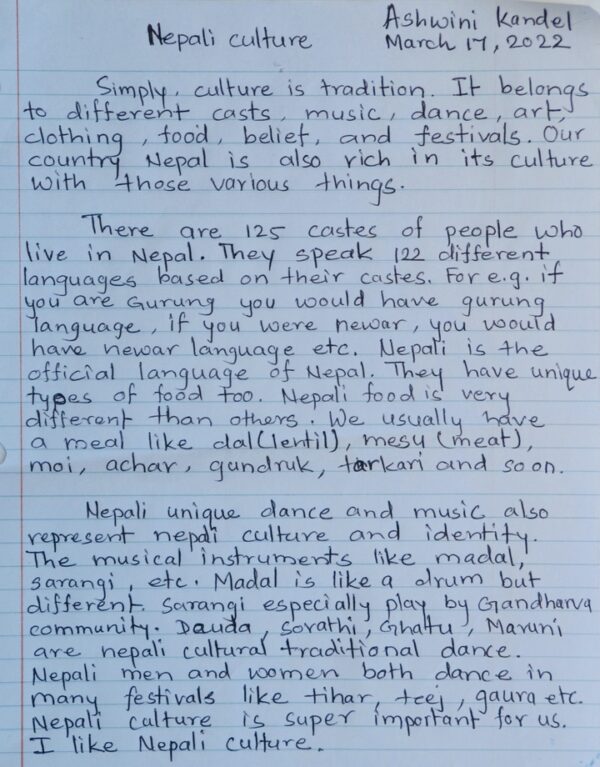 Nepali culture
Ashwini Kandel
March 17, 2022
Simply, culture is tradition. It belongs
to different casts, music, dance, art,
clothing, food, belief, and festivals. Our
country Nepal is also rich in its culture
with those various things.
There are 125 castes of people who
live in Nepal. They speak 122 different
languages based on their castes. For e.g. if
you are Gurung you would have gurung
language, if you were newar, you would
have newar language etc. Nepali is the
official language of Nepal. They have unique
types of food too. Nepali food is very
different than others. We usually have
a meal like dal(lentil), mesu (meat),
moi, achar, gundruk, tarkari and so on.
Nepali unique dance and music also
represent nepali culture and identity.
The musical instruments like madal,
sarangi, etc. Madal is like a drum but
different. Sarangi especially play by Gandharva
community. Deuda, Sorathi, Ghatu, Maruni
are nepali cultural traditional dance.
Nepali men and women both dance in
many festivals like tihar, teej, gaura etc.
Nepali culture is super important for us.
I like Nepali culture.